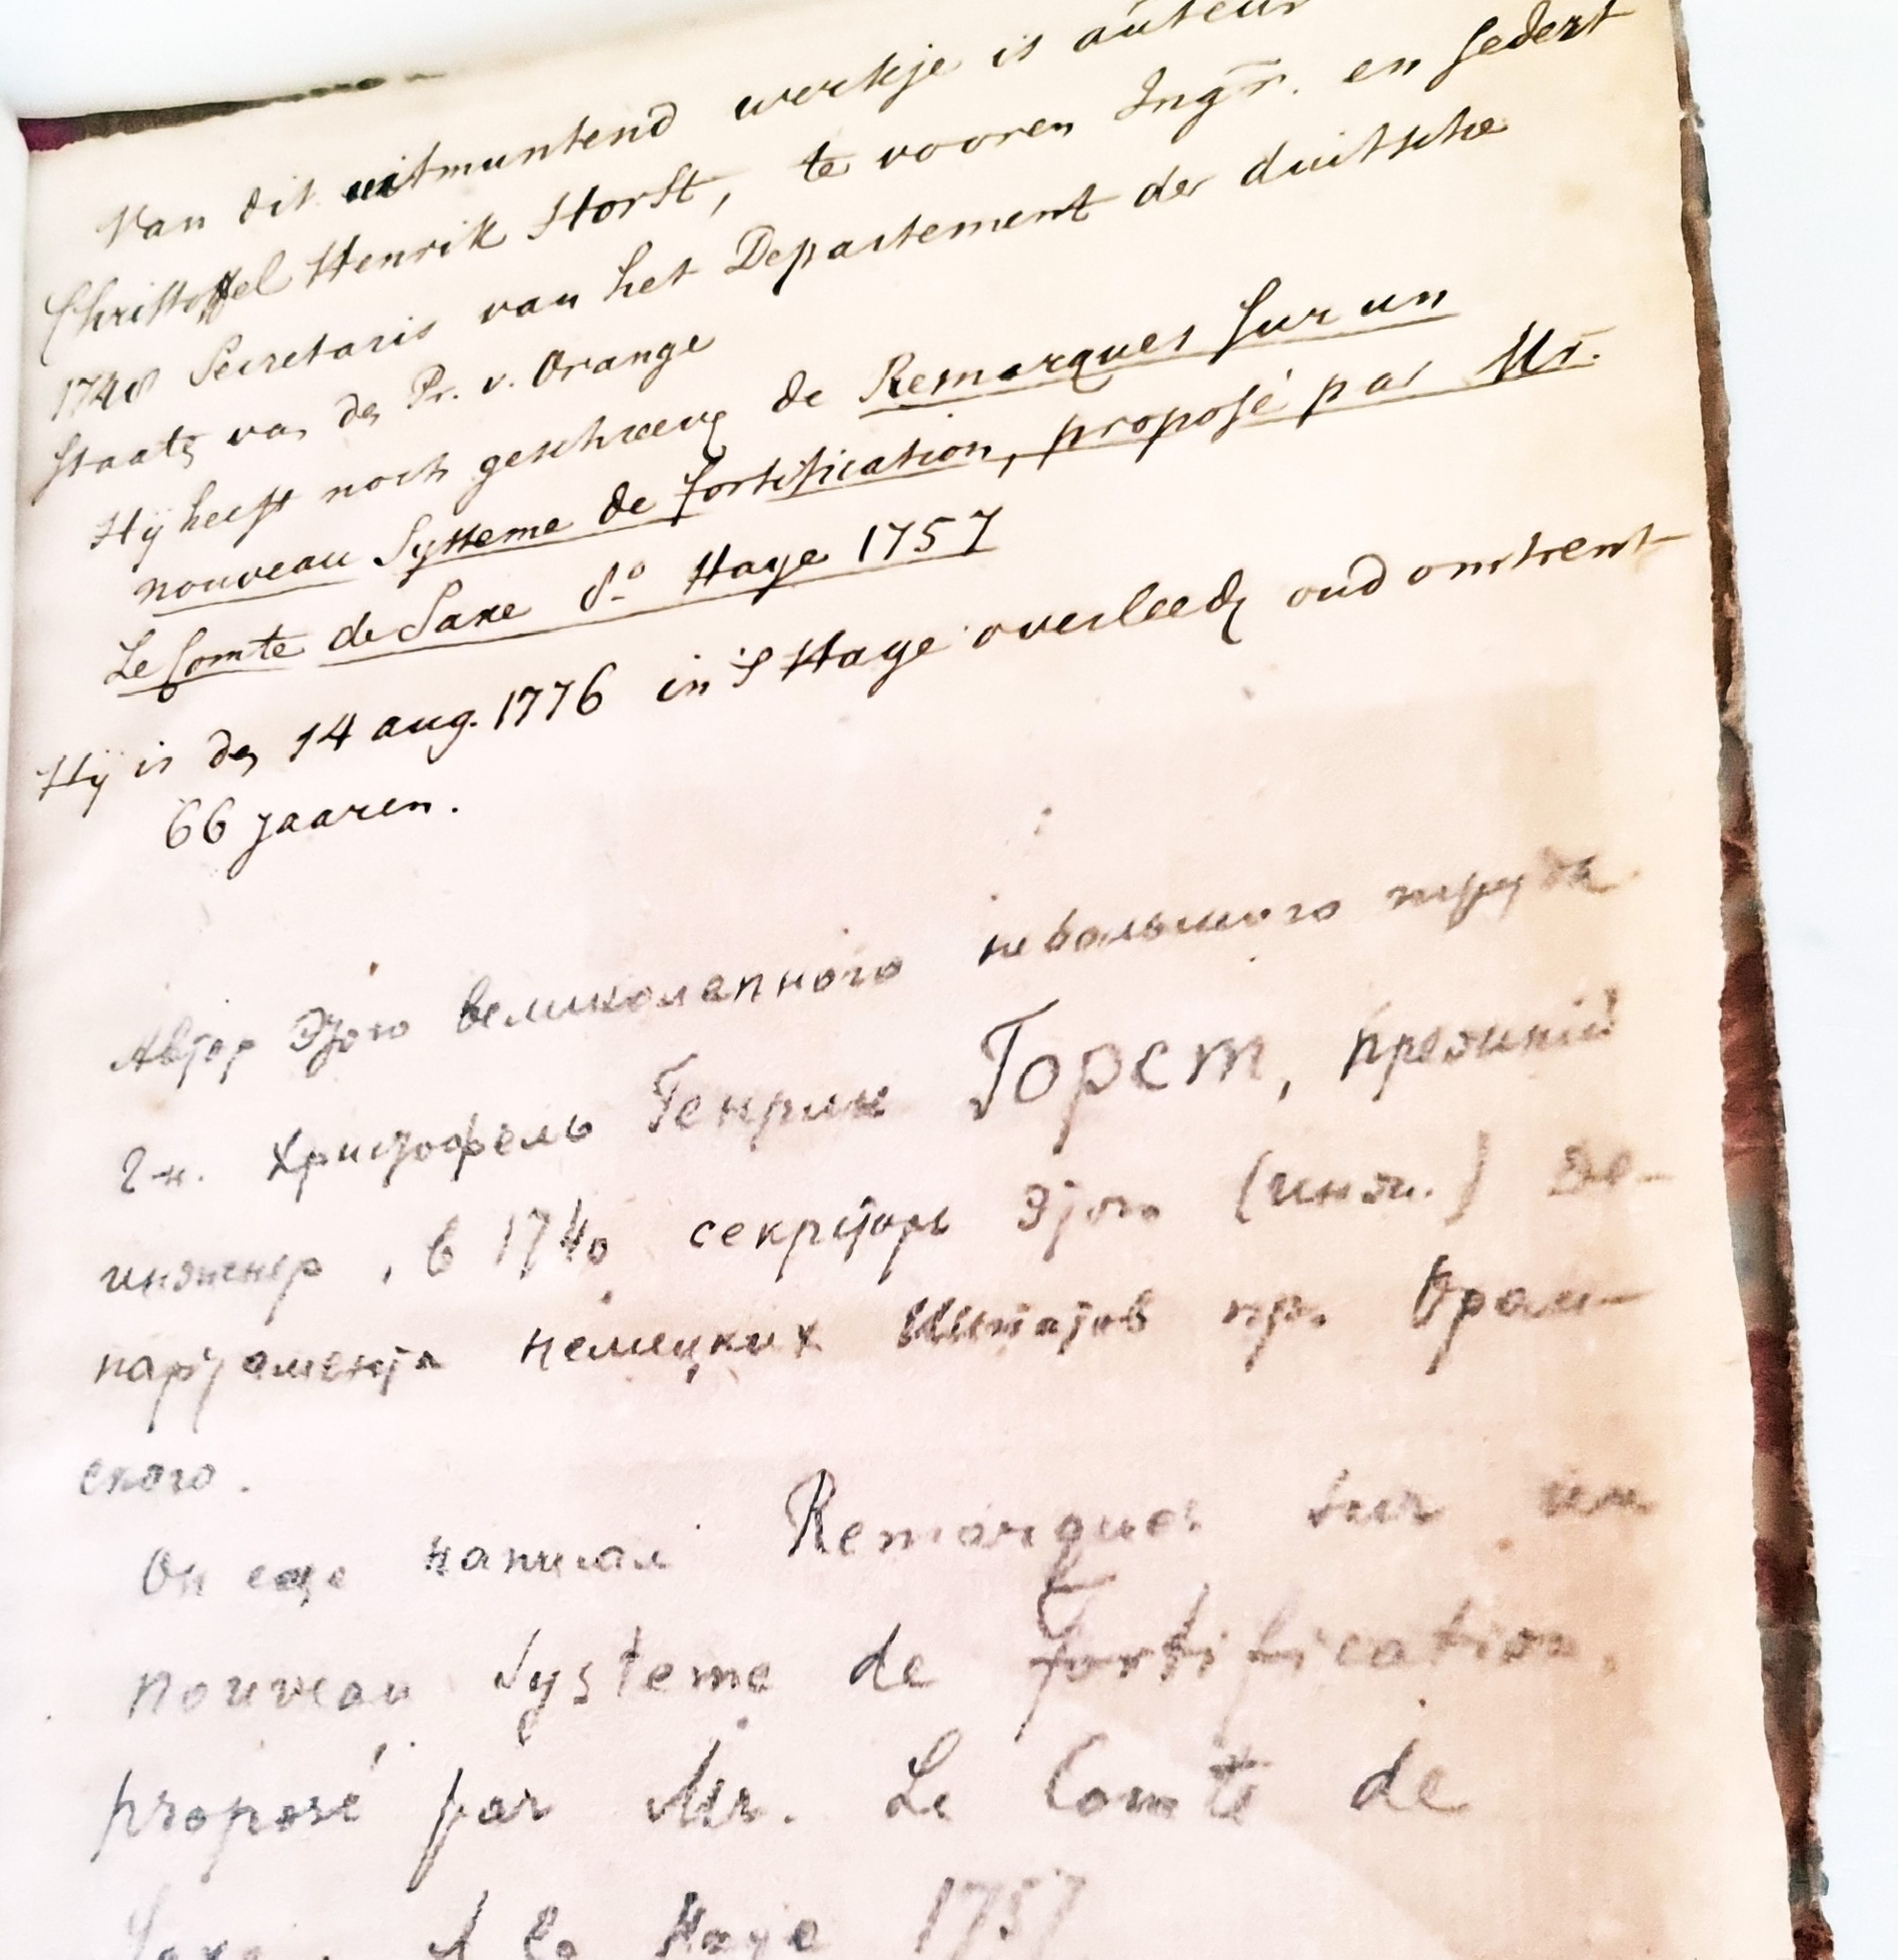 Van dit uitmuntend werkje is auteur
Christoffel Henrik Horst, te vooren Ingr. en sedert
1740 Secretaris van het Departement der duitsche
staaten van den Pr. v. Orange
Hij heeft noch geschreven de Remarques sur un
nouveau Systeme de fortification, proposé par Mr.
Le Comte de Saxe 8o Haye 1757
Hij is den 14 aug. 1776 in 's Hage overleeden oud omtrent
66 jaaren.
Автор этого великолепного небольшого труда
г-н. Христофель Генрик Горст, прежний
инженер, в 1740 секретарь этого (инж.) де-
партамента немецких Штатов пр. Оран-
ского.
Он еще написал Remarques sur un
nouveau Systeme de fortification,
proposé par Mr. Le Comte de
Saxe. A la Haye 1757